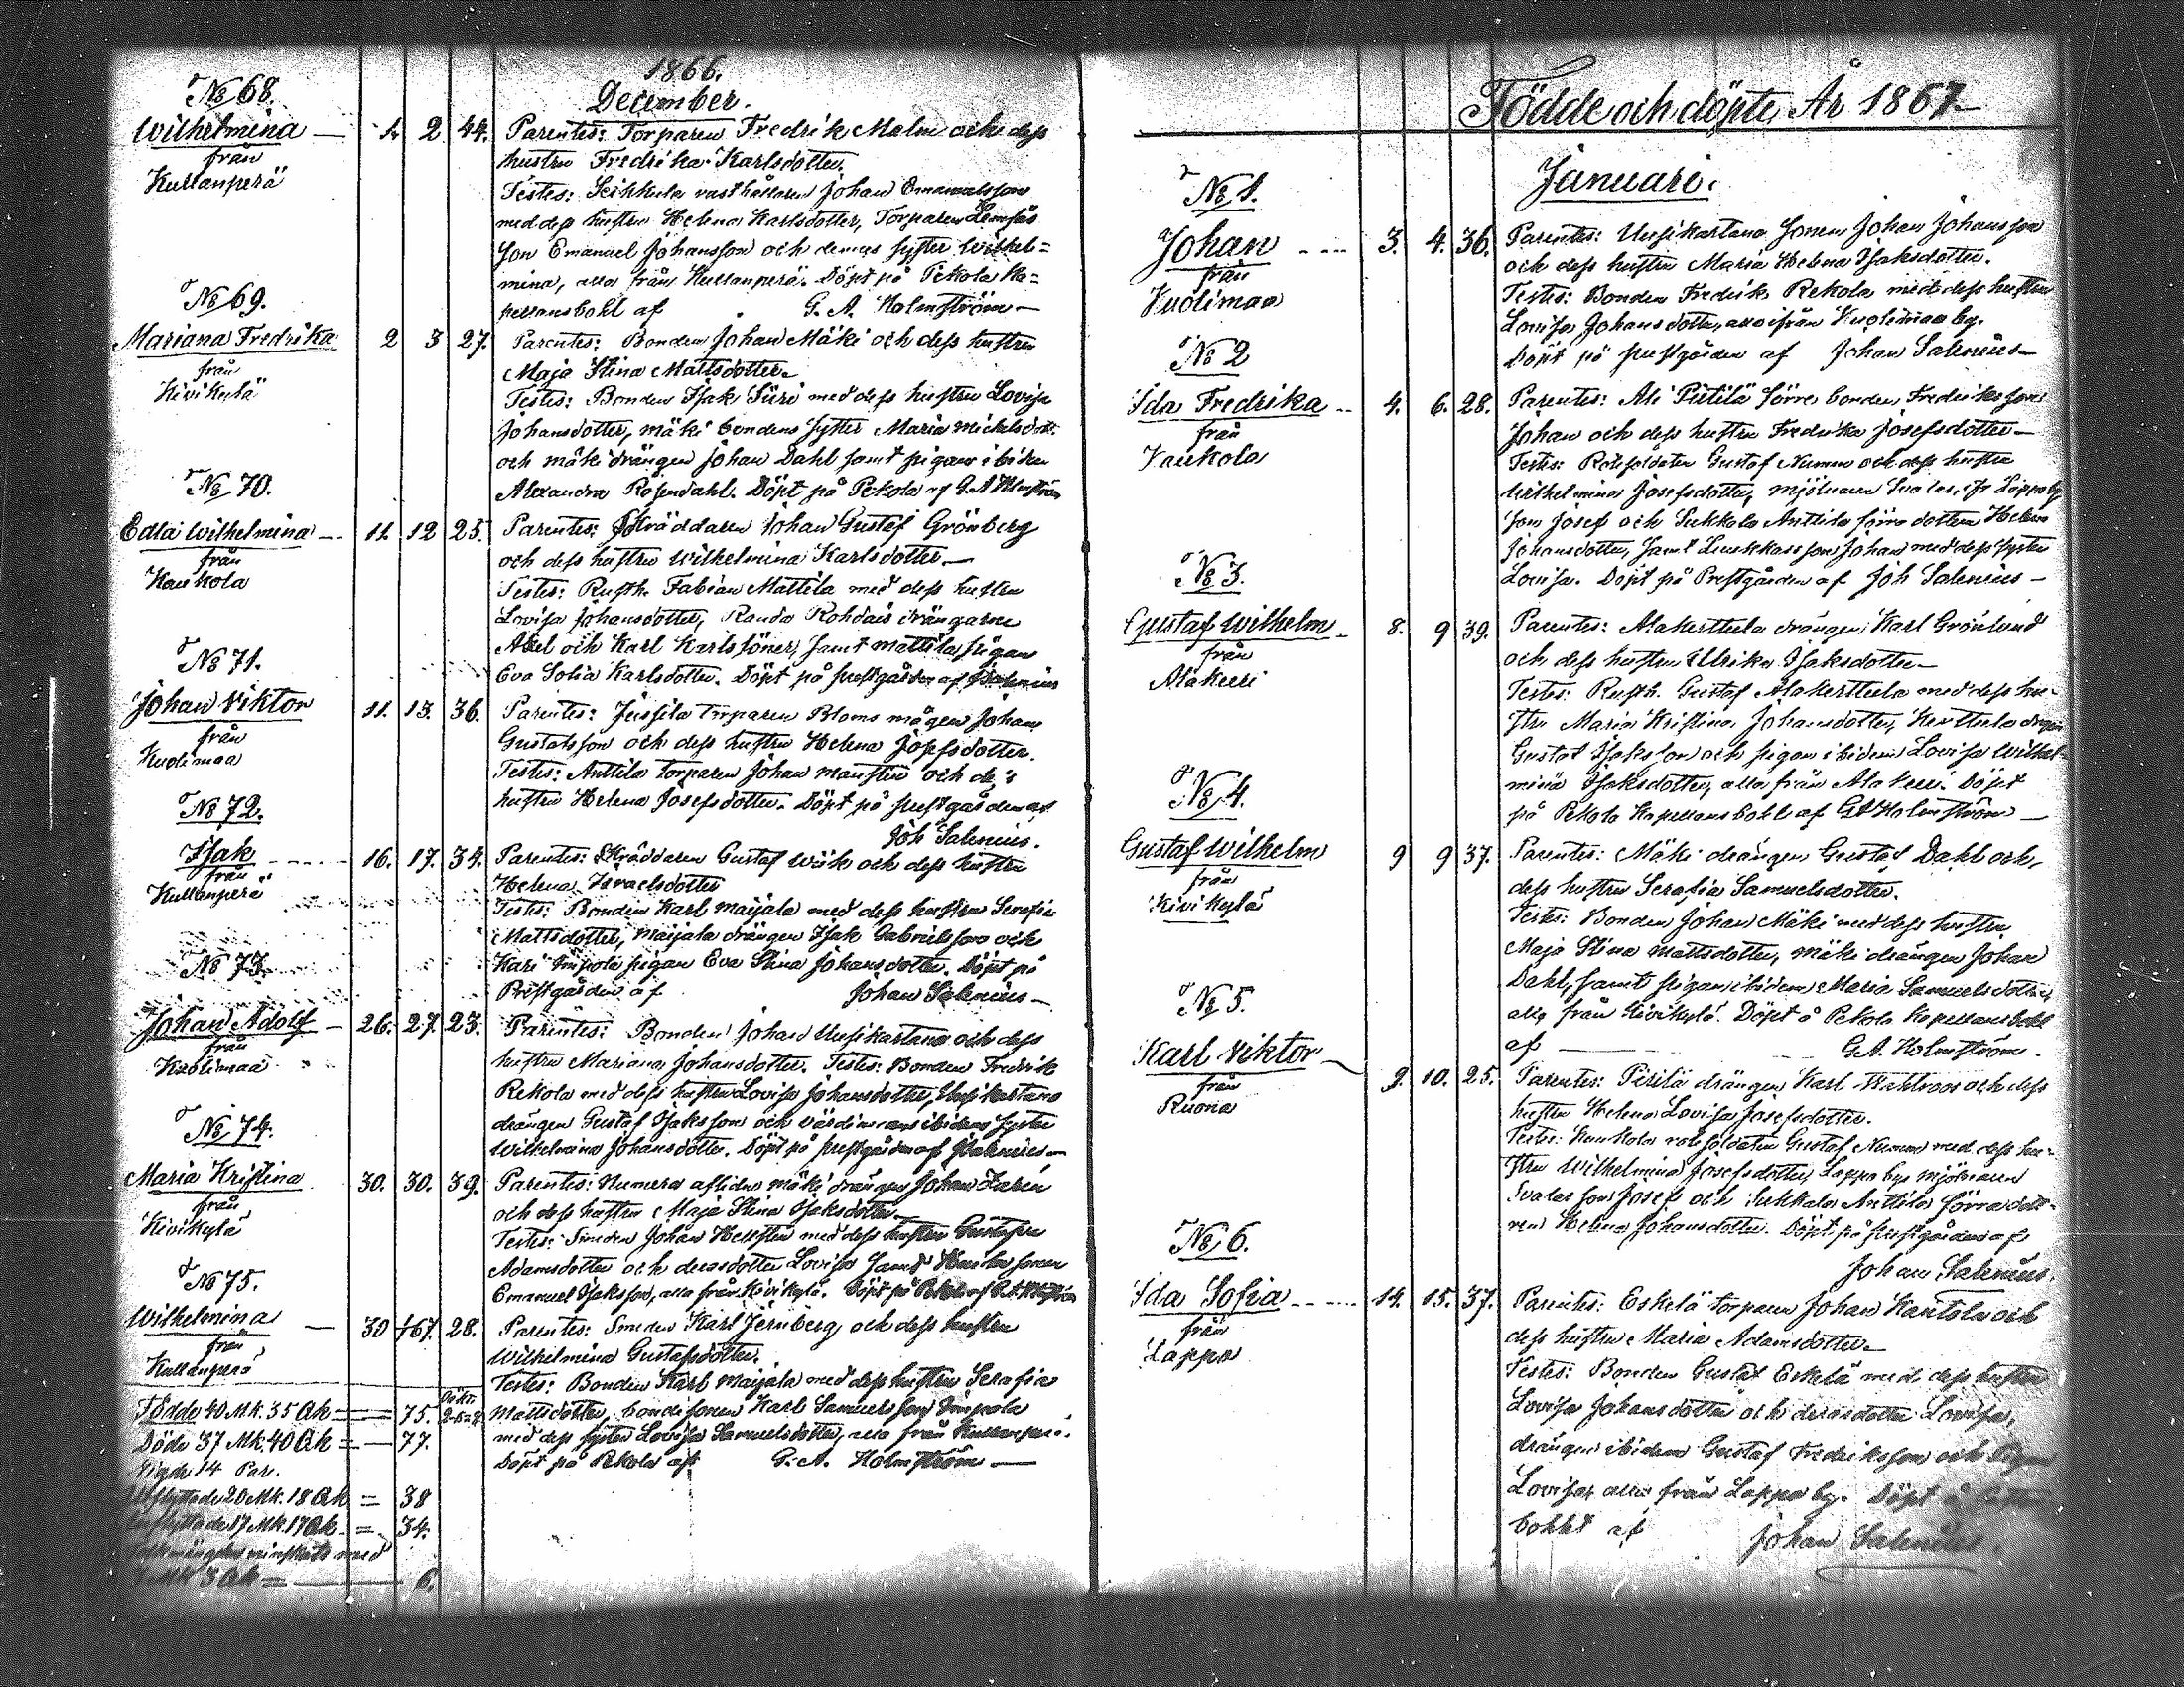 1866.
December.
No 68.
Wilhelmina — 1. 2 44. Parentes: Torparen Fredrik Malm och dess
från
Kullanperä
hustru Fredrika Karlsdotter.
Testes: rusthållaren Johan Emanuelsson
med dess hustru Helena Karlsdotter, Torparen
son Emanuel Johansson och dennes syster Wilhel=
mina, alla från Kullanperä. Döpt på Pekola Ka=
pellansbohl af G. A. Holmström —
No 69.
Mariana Fredrika 2 3 27. Parentes: Bonden Johan Mäki och dess hustru
från
Kivikylä
Maja Stina Mattsdotter.
Testes: Bonden Isak Piiri med dess hustru Lovisa
Johansdotter, Mäki bondens syster Maria Michelsdott:
och Mäki drängen Johan Dahl samt pigan ibidem
Alexandra Rosendahl. Döpt på Pekola af G. A Holmström
No 70.
Edla Wilhelmina — 11. 12 25. Parentes: Skräddaren Johan Gustaf Grönberg
från
Kaukola
och dess hustru Wilhelmina Karlsdotter —
Testes: Rusth. Fabian Mattila med dess hustru
Lovisa Johansdotter, Rohdais drängarne
Axel och Karl Karlssöner, samt Mattila pigan
Eva Sofia Karlsdotter. Döpt på prestgården af J Salenius
No 71.
Johan Viktor 11. 13. 36. Parentes: Jussila torparen Bloms mågen Johan
från
Kuolimaa
Gustafsson och dess hustru Helena Josefsdotter.
Testes: Anttila torparen Johan Mansten och dess
hustru Helena Josefsdotter. Döpt på prestgården af
Joh Salenius.
No 72.
Isak 16. 17. 34. Parentes: Skräddaren Gustaf Wiik och dess hustru
från
Kullanperä
Helena Israelsdotter
Testes: Bonden Karl Maijala med dess hustru Serafia
Mattsdotter, Maijala drängen Isak Gabrielsson och
Impola pigan Eva Stina Johansdotter. Döpt på
Prestgården af Johan Salenius —
No 73.
Johan Adolf — 26. 27. 23. Parentes: Bonden Johan Uusikartano och dess
från
Kuolimaa
hustru Mariana Johansdotter. Testes: Bonden Fredrik
Rekola med dess hustru Lovisa Johansdotter, Uusikartano
drängen Gustaf Isaksson och värdinnans ibidem syster
Wilhelmina Johansdotter. Döpt på prestgården af J Salenius —
No 74.
Maria Kristina 30. 30. 39. Parentes: Numera aflidne Mäki drängen Johan Laren
från
Kivikylä
och dess hustru Maja Stina Isaksdotter —
Testes: Smeden Johan Hellsten med dess hustru Gustafva
Adamsdotter och derasdotter Lovisa samt sonen
Emanuel Isaksson, alla från Kivikylä. Döpt på Pekola af G. A. Holmström
No 75.
Wilhelmina — 30 1/67. 28. Parentes: Smeden Karl Jernberg och dess hustru
från
Kullanperä
Wilhelmina Gustafsdotter.
Testes: Bonden Karl Maijala med dess hustru Serafia
Mattsdotter, bondesonen Karl Samuelsson Impola
med dess syster Lovisa Samuelsdotter, alla från Kullanperä.
Döpt på Pekola af G. A. Holmström —
Födde 40 Mk. 35 Qk = — 75.
Döde 37 Mk. 40 Qk = — 77.
Vigde 14 Par.
20 Mk. 18 Qk = 38
17 Mk. 17 Qk = 34.
minskats med
3 Qk = — 6.
Födde och döpte År 1867
Januari.
No 1.
Johan 3. 4. 36. Parentes: Uusikartano Sonen Johan Johansson
från
Kuolimaa
och dess hustru Maria Helena Isaksdotter.
Testes: Bonden Fredrik Rekola med dess hustru
Lovisa Johansdotter, alla ifrån Kuolimaa by.
Döpt på prestgården af Johan Salenius —
No 2
Ida Fredrika 4. 6. 28. Parentes: Ali Pietilä förre bonden Fredrikssons
från
Kaukola
Johan och dess hustru Fredrika Josefsdotter —
Testes: Rotesoldaten Gustaf Numm och dess hustru
Wilhelmina Josefsdotter, mjölnaren Svalas, ifr Lappa by
son Josef och Sukkala Anttila förra dotter Helena
Johansdotter, samt son Johan med dess syster
Lovisa. Döpt på Prestgården af Joh Salenius —
No 3.
Gustaf Wilhelm 8. 9 39. Parentes: Alakerttula drängen Karl Grönlund
från
Alakeri
och dess hustru Ulrika Isaksdotter —
Testes: Rusth. Gustaf Alakerttula med dess hu-
stru Maria Kristina Johansdotter, Kerttula drängen
Gustaf Isaksson och pigan ibidem Lovisa Wilhel-
mina Isaksdotter, alla från Alakeri. Döpt
på Pekola Kapellansbohl af GA Holmström —
No 4.
Gustaf Wilhelm 9 9 37. Parentes: Mäki drängen Gustaf Dahl och
från
Kivikylä
dess hustru Serafia Samuelsdotter.
Testes: Bonden Johan Mäki med dess hustru
Maja Stina Mattsdotter, Mäki drängen Johan
Dahl, samt pigan ibidem Maria Samuelsdotter,
alla från Kivikylä. Döpt å Pekola Kapellansbohl
af — G. A. Holmström.
No 5.
Karl Viktor 9. 10. 25. Parentes: Pirilä drängen Karl och dess
från
Ruona
hustru Helena Lovisa Josefsdotter.
Testes: Kaukola rotesoldaten Gustaf Numm med dess hu-
stru Wilhelmina Josefsdotter, Lappa by mjölnaren
Svalas son Josef och Sukkala Anttila förra dott-
ren Helena Johansdotter. Döpt på prestgården af
Johan Salenius.
No 6.
Ida Sofia 14. 15. 37. Parentes: Eskelä torparen Johan Kantola och
från
Lappa
dess hustru Maria Adamsdotter —
Testes: Bonden Gustaf Eskelä med dess hustru
Lovisa Johansdotter och derasdotter Lovisa,
drängen ibidem Gustaf Fredriksson och Pigan
Lovisa, alla från Lappa by. Döpt å
bohlet af Johan Salenius.